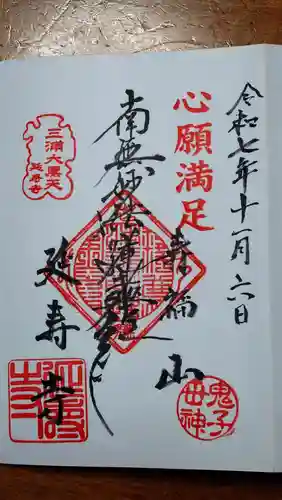 令和七年十一月六日
心願満足
寿福山
南無妙法蓮華経
延寿寺
三浦大黒天
延寿寺
鬼子
母神